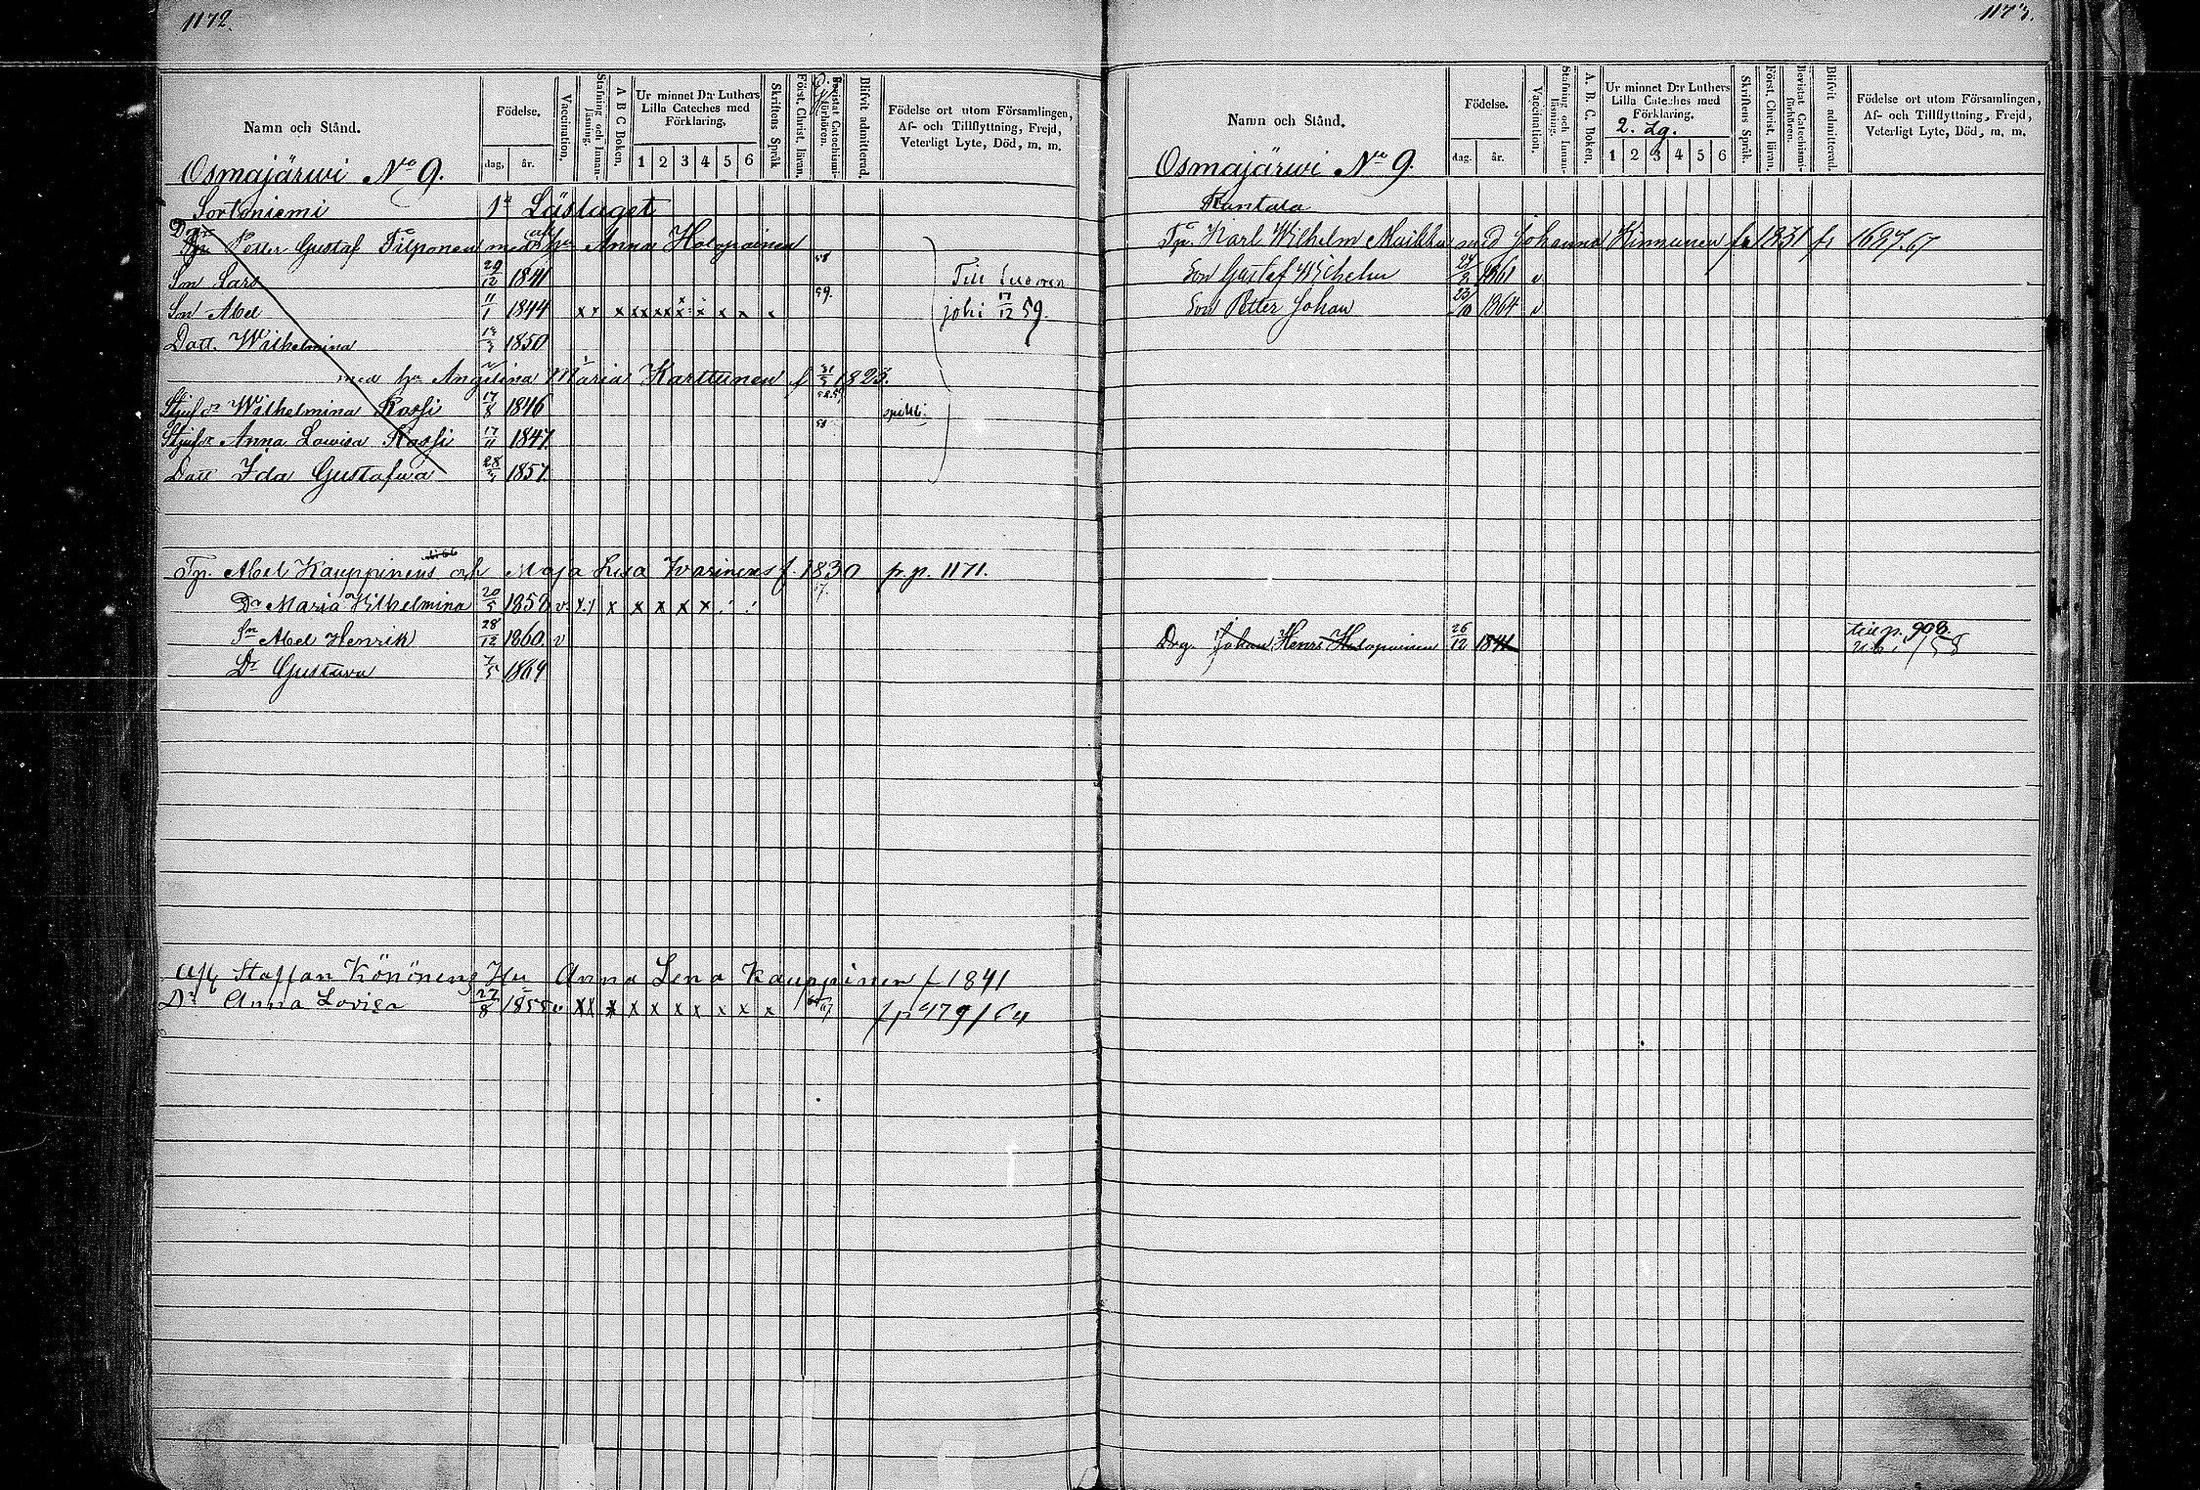 1172.
Namn och Stånd.
Födelse.
dag, år.
Vaccination.
Stafning och Innan-läsning.
A B C Boken.
Ur minnet D:r Luthers Lilla Cateches med Förklaring.
1 2 3 4 5 6
Skriftens Språk
Först. Christ. läran.
Bevistat Catechismi-förhören.
Blifvit admitterad.
Födelse ort utom Församlingen,
Af- och Tillflyttning, Frejd,
Veterligt Lyte, Död, m. m.
Osmajärwi No 9.
Sortoniemi 1a Läslaget
Petter Gustaf Tilponen med hu Anna Holopainen
Son Lars 29/12 1841 58 Till Suomen
Son Abel 11/1 1844 x x x x x x x x x x x x 59. johi 17/12 59.
Dott. Wilhelmina 1850
med hu Angelina Maria Karttunen f 31/5 1825.
Stjufdr Wilhelmina Rossi 17/8 1846
Stjufdr Anna Lowisa Rossi 17/11 1847 58
Dott Ida Gustafwa 1857
Tp. Abel Kauppinens och Maja Lisa Iwarinens f. 1830 p.p. 1171.
Dr Maria Wilhelmina 20/5 1858 v. x x x x x x
Sn Abel Henrik 28/12 1860. v
Dr Gustava 7/5 1864
Afl Staffan Könönens Hu Anna Lena Kauppinen f 1841
Dr Anna Lovisa 27/8 1855 v x x x x x x x x x x f p 479/64
1173.
Namn och Stånd.
Födelse.
dag. år.
Vaccination.
Stafning och Innan-läsning.
A. B. C. Boken.
Ur minnet D:r Luthers Lilla Cateches med Förklaring.
2. Lg.
1 2 3 4 5 6
Skriftens Språk.
Först. Christ. läran.
Bevistat Catechismi-förhören.
Blifvit admitterad.
Födelse ort utom Församlingen,
Af- och Tillflyttning, Frejd,
Veterligt Lyte, Död, m. m.
Osmajärwi No 9.
Rantala
Tp. Karl Wilhelm med Johanna Kinnunen 1831 fr 1627.67
Son Gustaf Wilhelm 24/2 1861 v
Son Petter Johan 23/10 1864 v
Drg. Johan Henr Holopainen 26/12 1841 till p. 908